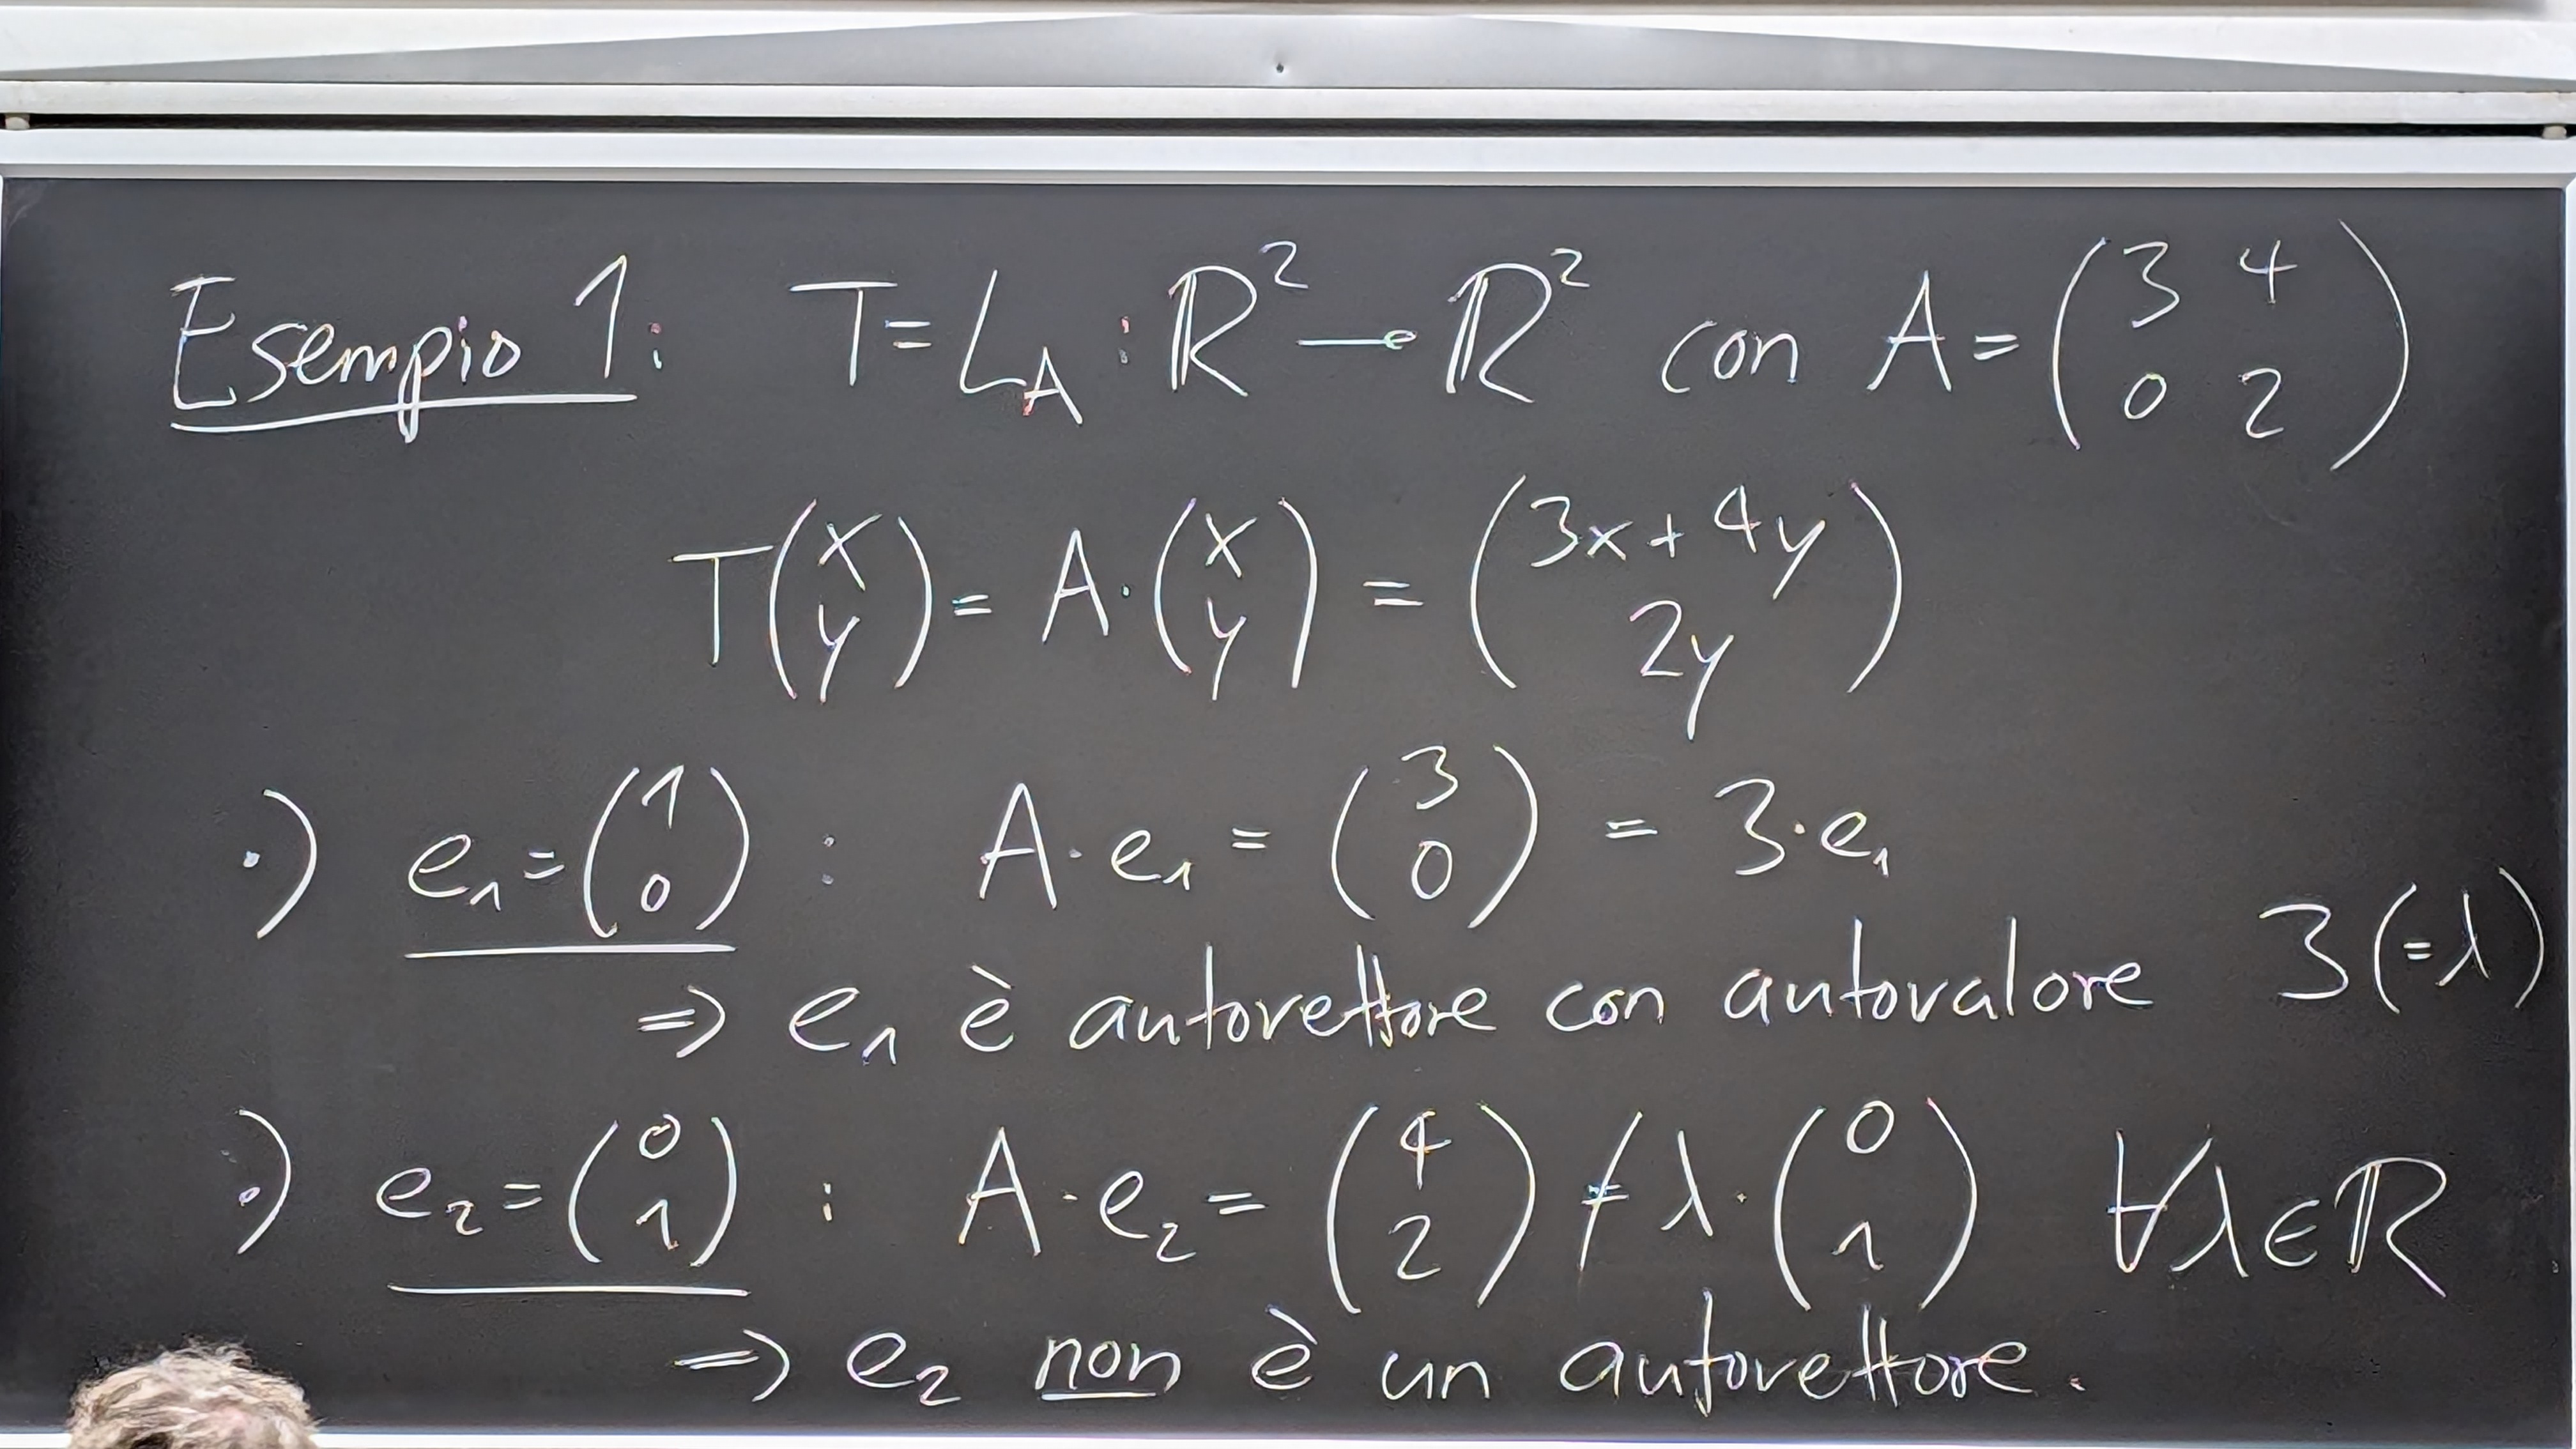 Esempio 1: T = L_A : ℝ² → ℝ² con A = (3 4; 0 2)
T(x; y) = A · (x; y) = (3x + 4y; 2y)
·) e₁ = (1; 0) : A · e₁ = (3; 0) = 3 · e₁
⇒ e₁ è autovettore con autovalore 3 (=λ)
·) e₂ = (0; 1) : A · e₂ = (4; 2) ≠ λ · (0; 1) ∀λ∈ℝ
⇒ e₂ non è un autovettore.